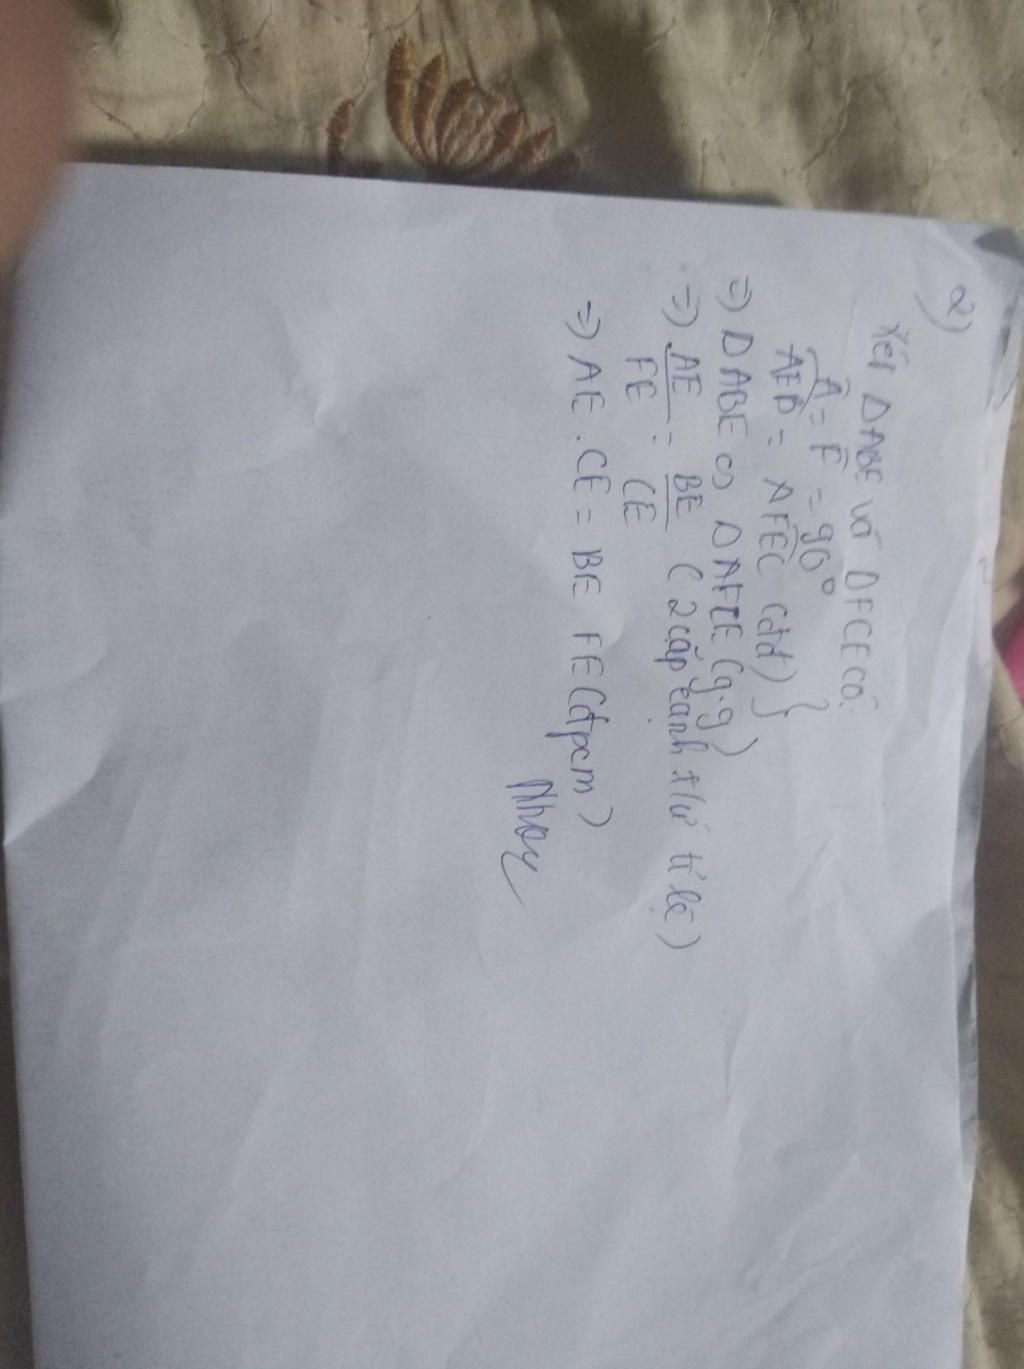 2)
Xét ΔABE và ΔFCE có:
Â = F̂ = 90°
AEB = AFEC (đđ) }
=> ΔABE ∽ ΔAFCE (g.g)
=> AE/FE = BE/CE (2 cặp cạnh t/ứ tỉ lệ)
=> AE . CE = BE . FE (đpcm)